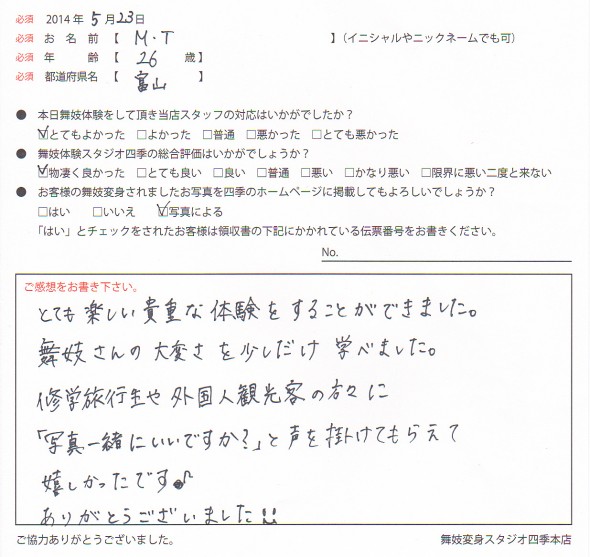 必須 2014 年 5 月 23 日
必須 お 名 前 【 M・T 】(イニシャルやニックネームでも可)
必須 年 齢 【 26 歳 】
必須 都道府県名 【 富山 】
● 本日舞妓体験をして頂き当店スタッフの対応はいかがでしたか？
☑とてもよかった □よかった □普通 □悪かった □とても悪かった
● 舞妓体験スタジオ四季の総合評価はいかがでしょうか？
☑物凄く良かった □とても良い □良い □普通 □悪い □かなり悪い □限界に悪い二度と来ない
● お客様の舞妓変身されましたお写真を四季のホームページに掲載してもよろしいでしょうか？
□はい □いいえ ☑写真による
「はい」とチェックをされたお客様は領収書の下記にかかれている伝票番号をお書きください。
No.
ご感想をお書き下さい。
とても楽しい貴重な体験をすることができました。
舞妓さんの大変さを少しだけ学べました。
修学旅行生や外国人観光客の方々に
「写真一緒にいいですか?」と声を掛けてもらえて
嬉しかったです♪
ありがとうございました!!
ご協力ありがとうございました。 舞妓変身スタジオ四季本店